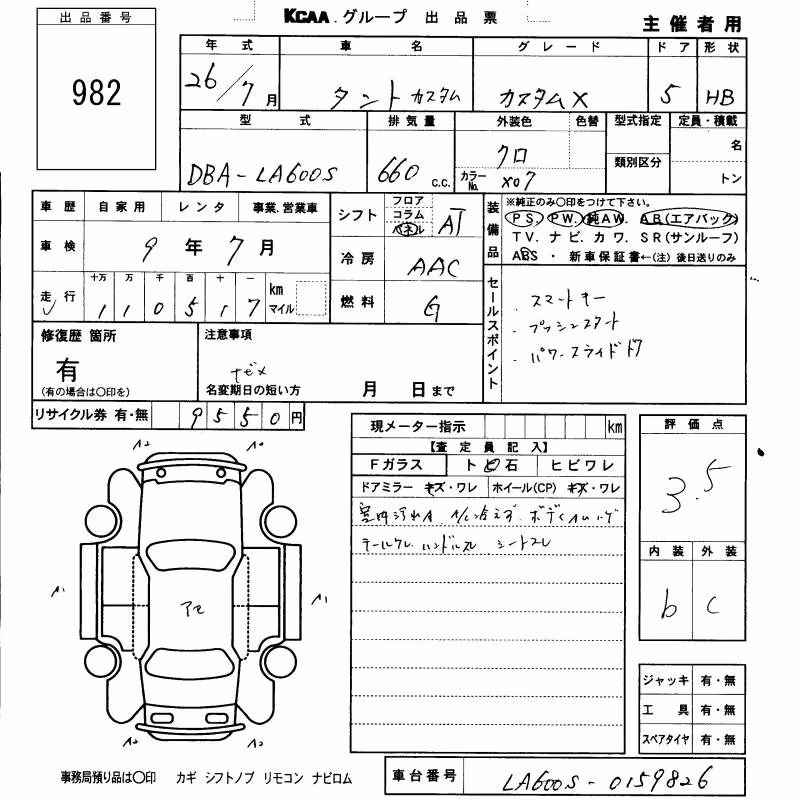 出品番号
982
KCAA.グループ 出品票
主催者用
年式 車名 グレード ドア 形状
26/7月 タントカスタム カスタムX 5 HB
型式 排気量 外装色 色替 型式指定 定員・積載
DBA-LA600S 660 c.c. クロ カラーNo. X07 類別区分 名 トン
車歴 自家用 レンタ 事業.営業車
車検 9年7月
走行 十万 万 千 百 十 一
1 1 0 5 1 7 km マイル
シフト フロア コラム パネル AT
冷房 AAC
燃料 G
装備品
※純正のみ〇印をつけて下さい。
PS. PW. 純AW. AB(エアバッグ)
TV. ナビ. カワ. SR(サンルーフ)
ABS ・ 新車保証書←(注)後日送りのみ
セールスポイント
. スマートキー
. プッシュスタート
. パワースライドドア
修復歴 箇所
有
(有の場合は〇印を)
注意事項
ナビ×
名変期日の短い方 月 日まで
リサイクル券 有・無 9550円
現メーター指示 km
【査定員記入】
Fガラス ト ビ 石 ヒビワレ
ドアミラー キズ・ワレ ホイール(CP) キズ・ワレ
室内汚れA A/C冷えず ボディ
テールワレ ハンドルスレ シートスレ
評価点
3.5
内装 外装
b C
A2 A0
A1 A1
アセ
A2 A2
ジャッキ 有・無
工具 有・無
スペアタイヤ 有・無
事務局預り品は〇印 カギ シフトノブ リモコン ナビロム
車台番号 LA600S-0159826